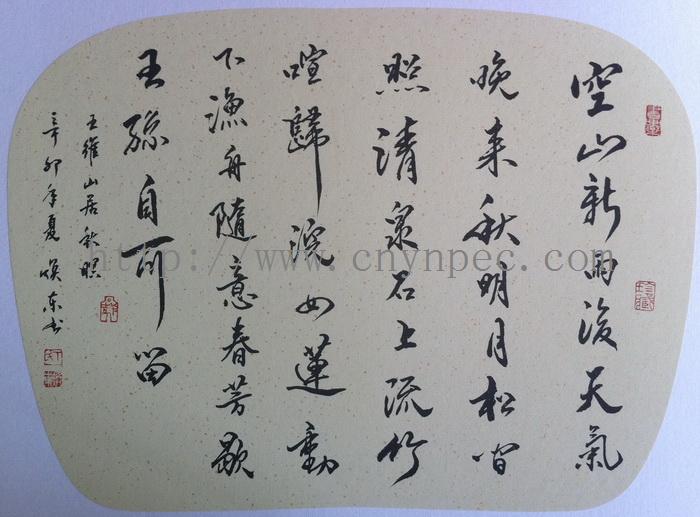 空山新雨後天氣
晚来秋明月松間
照清泉石上流竹
喧歸浣女蓮動
下漁舟隨意春芳歇
王孫自可留
王維山居秋暝
辛卯年夏焕东书
http://www.cnynpec.com